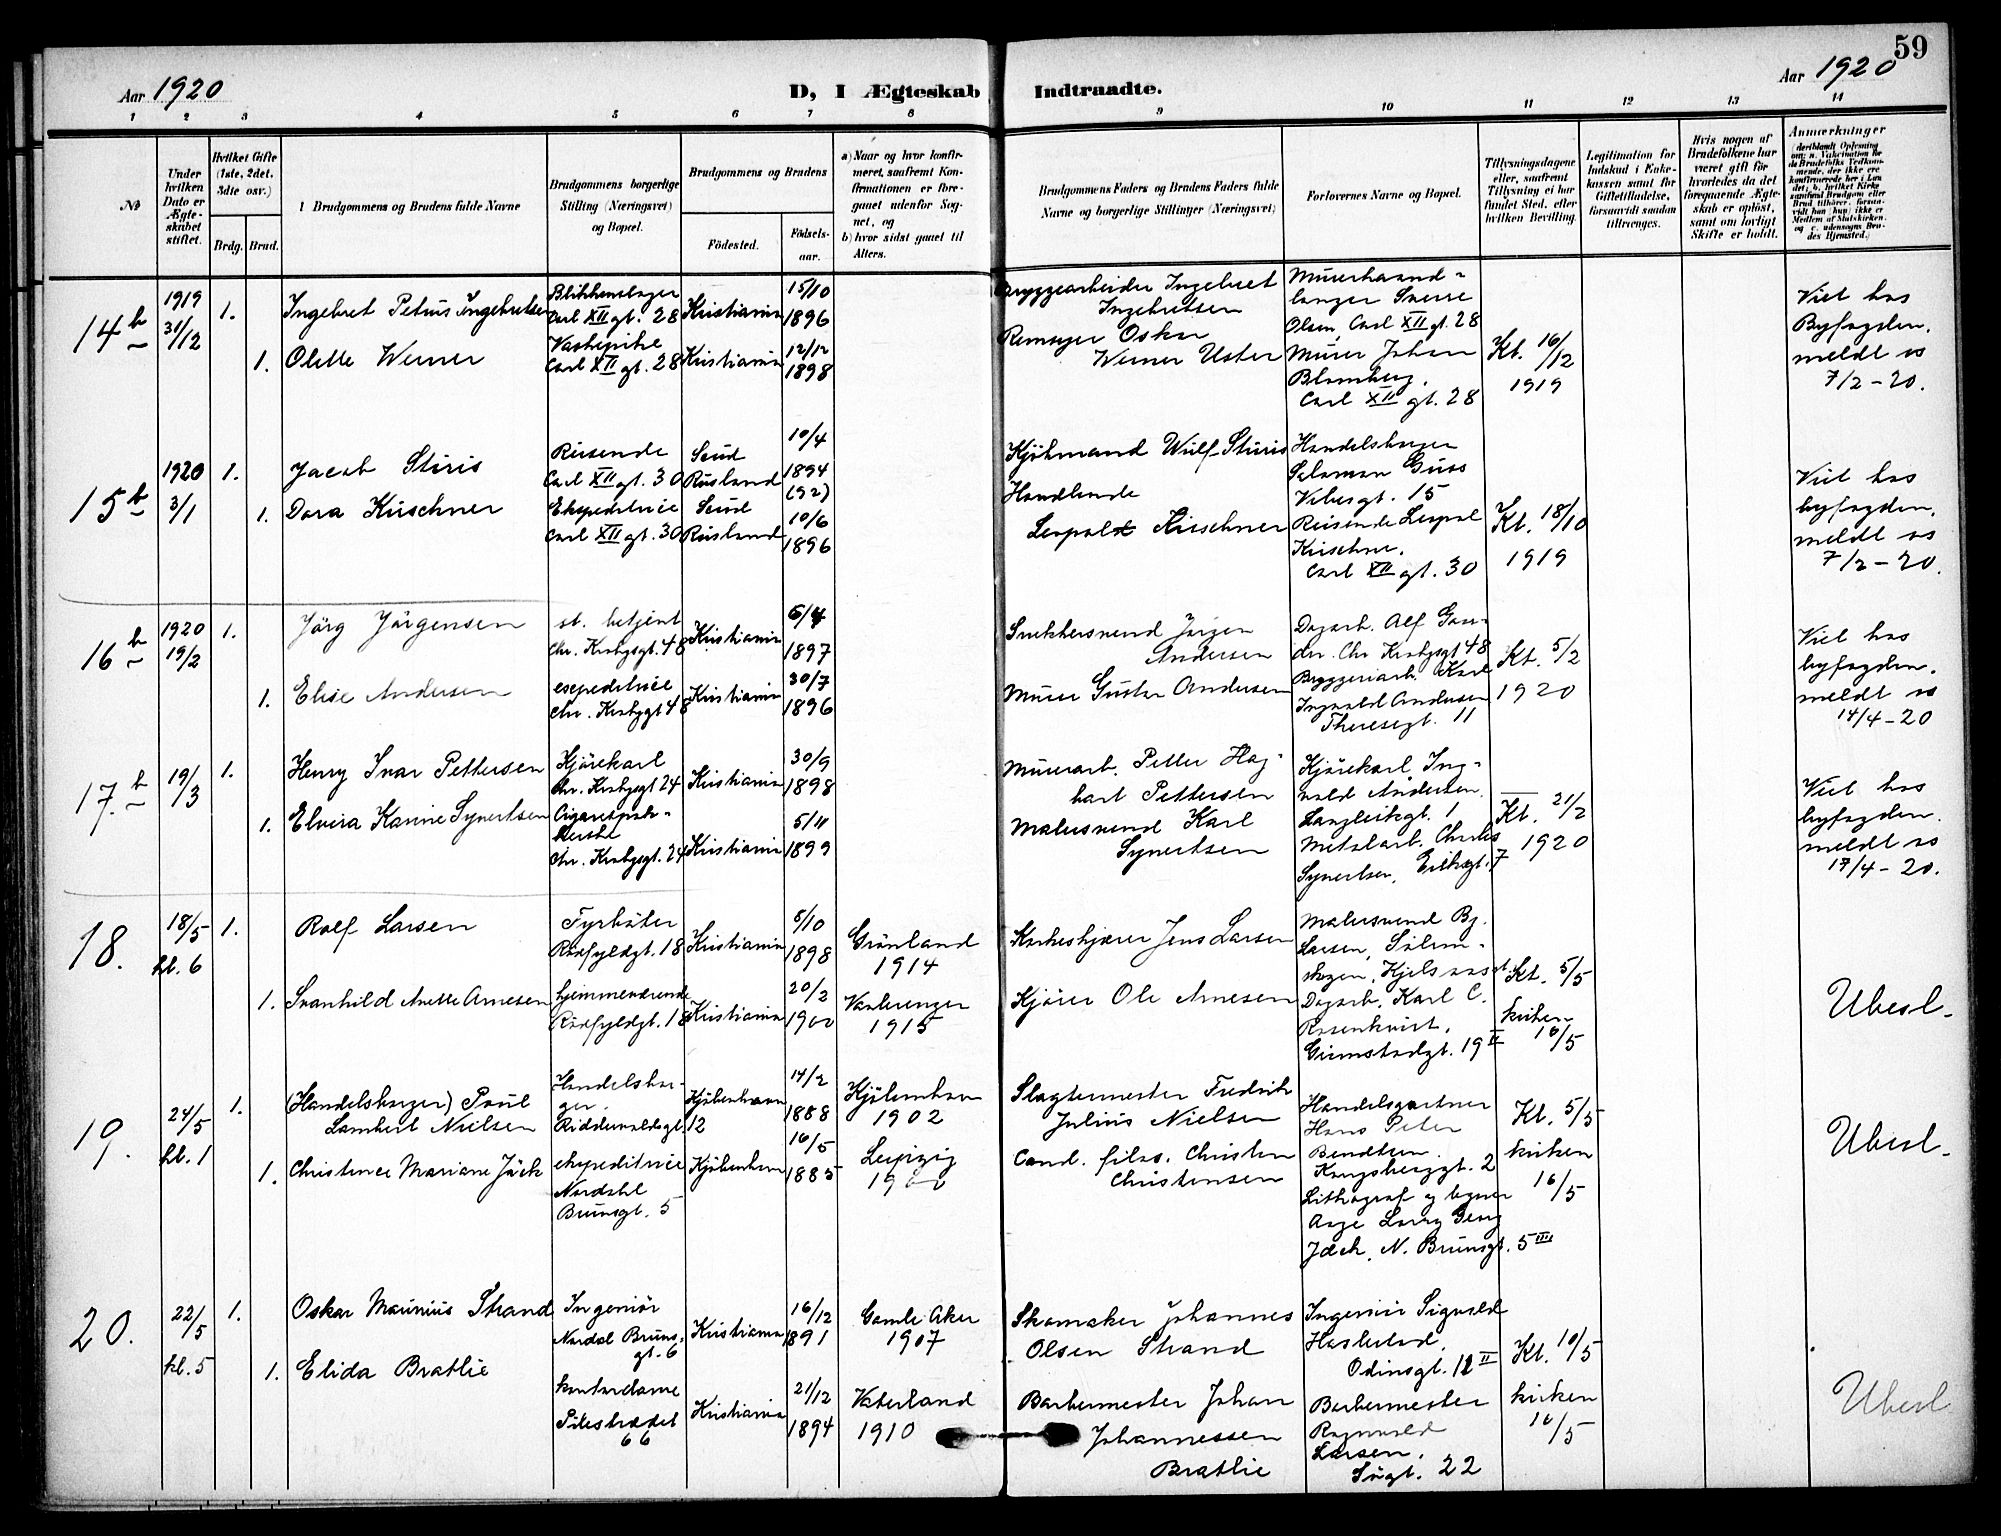 59
Aar 1920
D, I Ægteskab Indtraadte.
Aar 1920
1 2 3 4 5 6 7 8 9 10 11 12 13 14
No
Under hvilken Dato er Ægteskabet stiftet.
Hvilket Gifte (1ste, 2det, 3dte osv.)
Brdg. Brud.
Brudgommens og Brudens fulde Navne
Brudgommens borgerlige Stilling (Næringsvei) og Bopæl.
Brudgommens og Brudens
Fødested.
Fødselsaar.
a) Naar og hvor konfirmeret, saafremt Konfirmationen er foregaaet udenfor Sognet, og
b) hvor sidst gaaet til Alters.
Brudgommens Faders og Brudens Faders fulde Navne og borgerlige Stillinger (Næringsvei)
Forlovernes Navne og Bopæl.
Tillysningsdagene eller, saafremt Tillysning ei har fundet Sted, efter hvilken Bevilling.
Legitimation for Indskud i Enkekassen samt for Giftetilladelse, forsaavidt saadan tiltrænges.
Hvis nogen af Brudefolkene har været gift før hvorledes da det foregaaende Ægteskab er opløst, samt om lovligt Skifte er holdt.
Anmærkninger
14 b
1919
31/12
1.
Ingebret Petrus Ingebretsen
Blikkenslager
Carl XII gt. 28
Kristiania
15/10
1896
1.
Olette Werner
Carl XII gt. 28
Kristiania
12/12
1898
Bryggearbeider Ingebret
Ingebretsen
Oskar
Werner
Murerhaand-
langer Sverre
Olsen, Carl XII gt. 28
Murer Johan
Blomberg,
Carl XII gt. 28
Kt. 16/12
1919
Viet hos
Byfogden,
meldt os
7/2 - 20.
15 b
1920
3/1
1.
Jacob Stiris
Reisende
Carl XII gt. 30
Rusland
10/4
1894
(92)
1.
Dora Kirschner
Ekspeditrice
Carl XII gt. 30
Rusland
10/6
1896
Kjøbmand Wulf Stiris
Handlende
Leopold Kirschner
Handelsborger
Salomon
Vibesgt. 15
Reisende Leopol
Kirschner.
Carl XII gt. 30
Kt. 18/10
1919
Viet hos
byfogden,
meldt os
7/2 - 20.
16 b
1920
19/2
1.
Jörg Jörgensen
st. betjent
Chr. Krohgsgt 48
Kristiania
5/4
1897
1.
Elise Andersen
expeditrice
Chr. Krohggt 48
Kristiania
30/7
1896
Snekkersvend Jörgen
Andersen
Murer Gustav Andersen
Dagarb. Alf
Chr Krohgsgt 48
Bryggeriarb. Karl
Ingvald Andersen
Theresegt. 11
Kt. 5/2
1920
Viet hos
byfogden.
meldt os
14/4 - 20
17. b
19/3
1.
Henry Ivar Pettersen
Kjörekarl
Chr. Krohgsgt 24
Kristiania
30/9
1898
1.
Elvira Karine Synertsen
Cigaretpak-
kerske
Chr. Krohgsgt. 24
Kristiania
5/11
1899
Murerarb. Petter Hag-
bart Pettersen
Malersvend Karl
Synertsen
Kjörekarl Ing-
vald Andersen.
Langleikgt. 1
Metalarb. Charles
Synertsen, Eriksgt. 7
Kt. 21/2
1920
Viet hos
byfogden.
meldt os
17/4 - 20.
18.
18/5
kl. 6
1.
Rolf Larsen
Fyrböter
Rödfyldgt. 18
Kristiania
5/10
1898
Grönland
1914
1.
Svanhild Anette Arnesen
hjemmeværende
Rödfyldgt. 18
Kristiania
20/2
1900
Vaalerengen
1915
Jens Larsen
Kjörer Ole Arnesen
Malersvend
Larsen,
Dagarb. Karl C.
Rosenkvist,
Grimstadgt. 19 II
Kt. 5/5
kirken
16/5
Ubesl.
19.
24/5
kl. 1
1.
(Handelsborger) Poul
Lambert Nielsen
Handelsbor-
ger.
Riddervoldsgt. 12
Kjöbenhavn
14/2
1888
Kjöbenhavn
1902
1.
Christence Mariane Jäck
ekspeditrice
Nordahl
Brunsgt. 5
Kjöbenhavn
16/5
1885
Leipzig
1900
Slagtermester Fredrik
Julius Nielsen
Cand. filos. Christen
Christensen
Handelsgartner
Hans Peter
Bendtsen.
Kongsberggt. 2
Lithograf og tegner
Aage Georg
Jäck, N. Brunsgt. 5 III
Kt. 5/5
kirken
16/5
Ubesl.
20.
22/5
kl. 5
1.
Oskar Maurius Strand
Ingeniör
Nordal Bruns
gt. 6
Kristiania
16/12
1891
Gamle Aker
1907
1.
Elida Bratlie
kontordame
Pilestrædet
66
Kristiania
21/12
1894
Vaterland
1910
Skomaker Johannes
Olsen Strand
Barbermester Johan
Johannessen
Bratlie
Ingeniör Sigvald
Haslestad,
Odinsgt. 12 II
Barbermester
Ragnvald
Larsen,
22
Kt. 10/5
kirken
16/5
Ubesl.